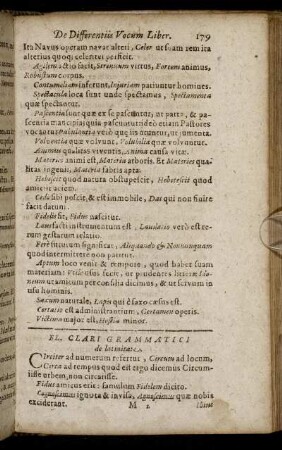 De Differentiis Vocum Liber. 179
Ita Navus operam navat alteri, Celer ut suam rem ita
alterius quoq; celeriter perficit.
Agilem actio facit, Strenuum virtus, Fortem animus,
Robustum corpus.
Contumeliam inferunt, Injuriam patiuntur homines.
Spectacula loca sunt unde spectamus, Spectamenta
quæ spectantur.
Pascentia sunt quæ ex se pascuntur, ut prata, &
pascentia
vocantur Pabulantia
Volventia quæ volvunt, Volubilia quæ volvuntur.
Animus qualitas viventis, anima causa vitæ.
Materies animi est, Materia arboris. Et Materies qua
litas ingenii, Materia fabris apta.
Hebes est quod natura obstupescit, Hebetescit quod
amisit aciem.
Cedo sibi poscit, & est immobile, Dat quod non fuit
facit datum.
Fidelis fit, Fidus nascitur.
Laus facti instrumentum est, Laudatio verò est re-
rum gestarum relatio.
Ferè situtum significat, Aliquando & Nonnunquam
quod intermittere non patitur.
Aptum loco venit & tempore, quod habet suam
materiam: Utile usus fecit, ut prudentis literæ: Ido-
neum utamicum per consilia dicimus, & ut servum in
usu hominis.
Saxum naturale, Lapis qui è saxo cæsus est.
Certatio est administrantium, Certamen operis.
Victima major est, Hostia minor.
FL. CLARI GRAMMATICI
de latinitate.
Circiter ad numerum refertur, Circum ad locum,
Circa ad tempus quod est ergo dicemus Circum-
isse urbem, non circatisse.
Fidus amicus erit: famulum Fidelem dicito.
Cognoscimus ignota & invisa, Agnoscimus quæ nobis
exciderant. M 2